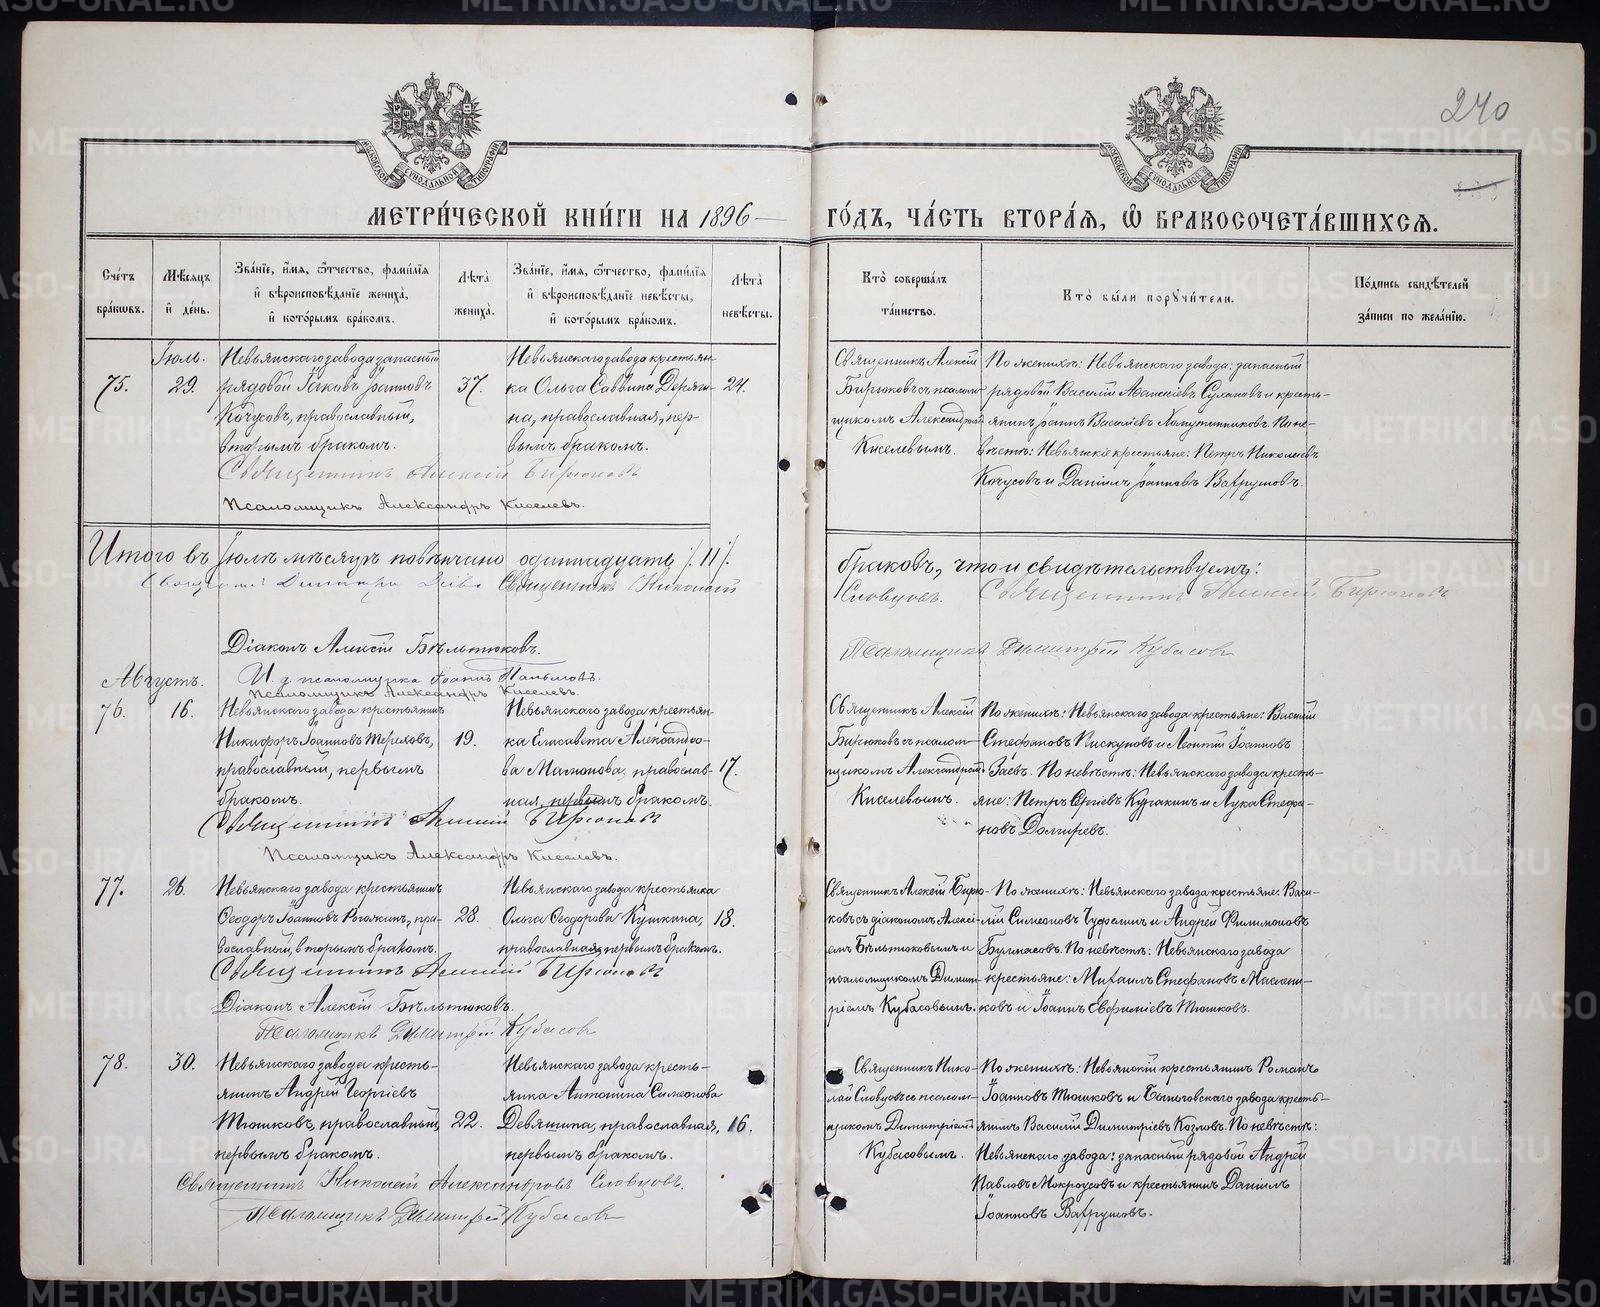 240
МОСКОВСКОЙ СѴНОДАЛЬНОЙ ТИПОГРАФІИ
МОСКОВСКОЙ СѴНОДАЛЬНОЙ ТИПОГРАФІИ
МЕТРИ́ЧЕСКОЙ КНИ́ГИ НА 1896 — ГО́ДЪ, ЧА́СТЬ ВТОРА́Я, Ѽ БРАКОСОЧЕТА́ВШИХСЯ.
Сче́тъ бра́кωвъ.
Мѣ́сяцъ и҆ де́нь.
Зва́нїе, и҆́мя, ѻ҆́тчество, фами́лїя
и҆ вѣроисповѣ́данїе жениха̀,
и҆ кото́рымъ бра́комъ.
Лѣ́та жениха̀.
Зва́нїе, и҆́мя, ѻ҆́тчество, фами́лїя
и҆ вѣроисповѣ́данїе невѣ́сты,
и҆ кото́рымъ бра́комъ.
Лѣ́та невѣ́сты.
Кто̀ соверша́лъ та́инство.
Кто̀ бы́ли порꙋчи́тели.
По́дпись свидѣ́телей за́писи по жела́нїю.
Іюль.
75.
29.
Невьянскаго завода запасный
рядовой Іаковъ Іоанновъ
Кочусовъ, православный,
вторымъ бракомъ.
37.
Невьянскаго завода крестьян-
ка Ольга Саввина Деряги-
на, православная, пер-
вымъ бракомъ.
24.
Священникъ Алексій
Бирюковъ съ псалом-
щикомъ Александромъ
Киселевымъ.
По женихѣ: Невьянскаго завода: запасный
рядовой Василій Моисеевъ Сухановъ и кресть-
янинъ Іоаннъ Васильевъ Хомутинниковъ. По не-
вѣстѣ: Невьянскіе крестьяне: Петръ Николаевъ
Кочусовъ и Даніилъ Іоанновъ Вахрушовъ.
Священникъ Алексій Бирюковъ
Псаломщикъ Александръ Киселевъ.
Итого въ Іюлѣ мѣсяцѣ повѣнчано одиннадцать /.11/. браковъ, что и свидѣтельствуемъ:
Священникъ Николай Словцовъ. Священникъ Алексій Бирюковъ
Діаконъ Алексій Бѣльтюковъ.
Псаломщикъ Димитрій Кубасовъ
И. д. псаломщика Іоаннъ Паньшовъ.
Псаломщикъ Александръ Киселевъ.
Августъ.
76.
16.
Невьянскаго завода крестьянинъ
Никифоръ Іоанновъ Тереховъ,
православный, первымъ
бракомъ.
19.
Невьянскаго завода крестьян-
ка Елисавета Александро-
ва Матюнова, православ-
ная, первымъ бракомъ.
17.
Священникъ Алексій
Бирюковъ съ псалом-
щикомъ Александромъ
Киселевымъ.
По женихѣ: Невьянскаго завода крестьяне: Василій
Стефановъ Пискуновъ и Леонтій Іоанновъ
Заевъ. По невѣстѣ: Невьянскаго завода кресть-
яне: Петръ Сергіевъ Куракинъ и Лука Стефа-
новъ Домиревъ.
Священникъ Алексій Бирюковъ
Псаломщикъ Александръ Киселевъ.
77.
26.
Невьянскаго завода крестьянинъ
Ѳеодоръ Іоанновъ Рогожкинъ, пра-
вославный, вторымъ бракомъ.
28.
Невьянскаго завода крестьянка
Ольга Ѳеодорова Кушкина,
православная, первымъ бракомъ.
18.
Священникъ Алексій Бирю-
ковъ съ діакономъ Алексі-
емъ Бѣльтюковымъ и
псаломщикомъ Димит-
ріемъ Кубасовымъ.
По женихѣ: Невьянскаго завода крестьяне: Васи-
лій Симеоновъ Чуфелинъ и Андрей Филимоновъ
Бурнасовъ. По невѣстѣ: Невьянскаго завода
крестьяне: Михаилъ Стефановъ Маслени-
ковъ и Іоаннъ Евфиміевъ Тюшковъ.
Священникъ Алексій Бирюковъ
Діаконъ Алексій Бѣльтюковъ.
Псаломщикъ Димитрій Кубасовъ
78.
30.
Невьянскаго завода кресть-
янинъ Андрей Георгіевъ
Тюшковъ, православный,
первымъ бракомъ.
22.
Невьянскаго завода кресть-
янка Антонина Симеонова
Девяшина, православная,
первымъ бракомъ.
16.
Священникъ Нико-
лай Словцовъ съ псалом-
щикомъ Димитріемъ
Кубасовымъ.
По женихѣ: Невьянскій крестьянинъ Романъ
Іоанновъ Тюшковъ и Быньговскаго завода кресть-
янинъ Василій Димитріевъ Козловъ. По невѣстѣ:
Невьянскаго завода: запасный рядовой Андрей
Павловъ Мокроусовъ и крестьянинъ Даніилъ
Іоанновъ Вахрушовъ.
Священникъ Николай Александровъ Словцовъ.
Псаломщикъ Димитрій Кубасовъ
METRIKI.GASO-URAL.RU